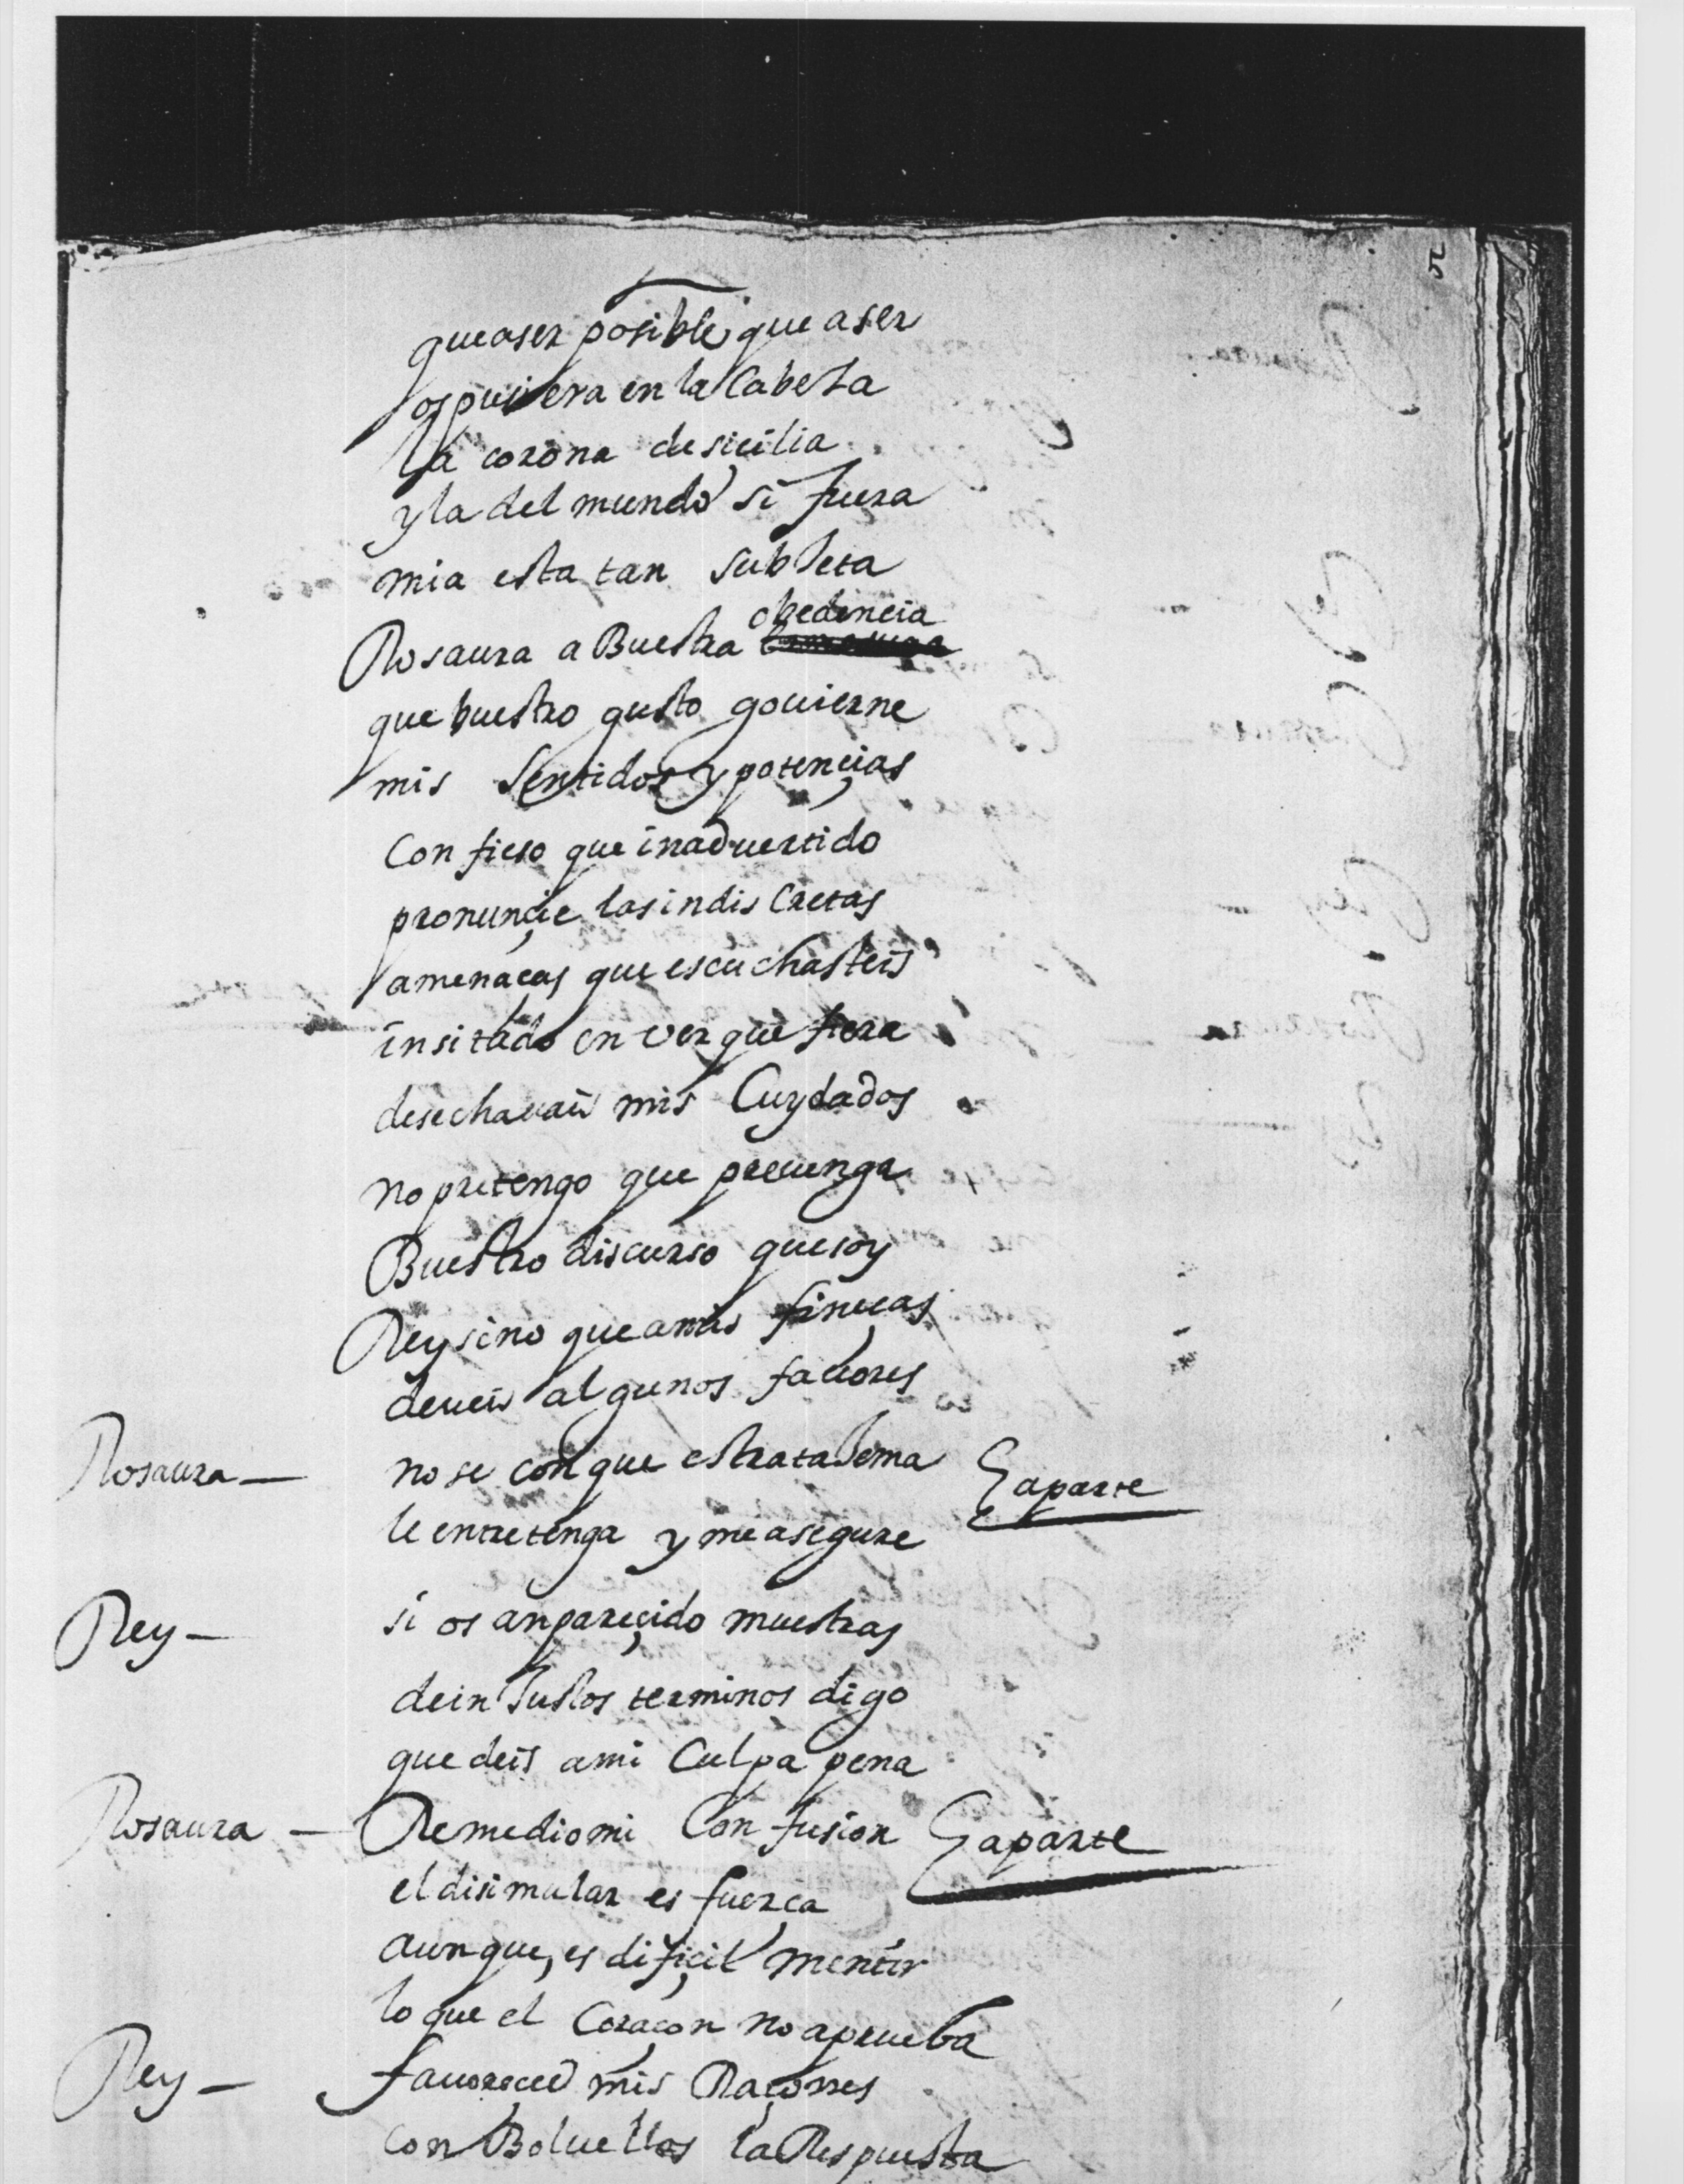 5
que aser posible que aser
os pusiera en la Cabesa
la corona de sicilia
y la del mundo si fuera
mia esta tan subJeta
obedencia
Rosaura a Buestra
que buestro gusto gouierne
mis sentidos y potençias
Confieso que inaduertido
pronunçie las indisCretas
amenaças que escuchasteis
insitado en ver que fiera
desechauais mis Cuydados
no pretengo que preuenga
Buestro discurso que soy
Rey sino que a mis fineças
deueis algunos fauores
Rosaura — no se con que estrataJema aparte
le entretenga y me asegure
Rey — si os an pareçido muestras
de inJustos terminos digo
que deis a mi Culpa pena
Rosaura — Remedio mi Confusion aparte
el disimular es fuerça
aunque, es difiçil mentir
lo que el Coraçon no aprueba
Rey — fauoreçed mis Raçones
con Boluelles la Respuesta